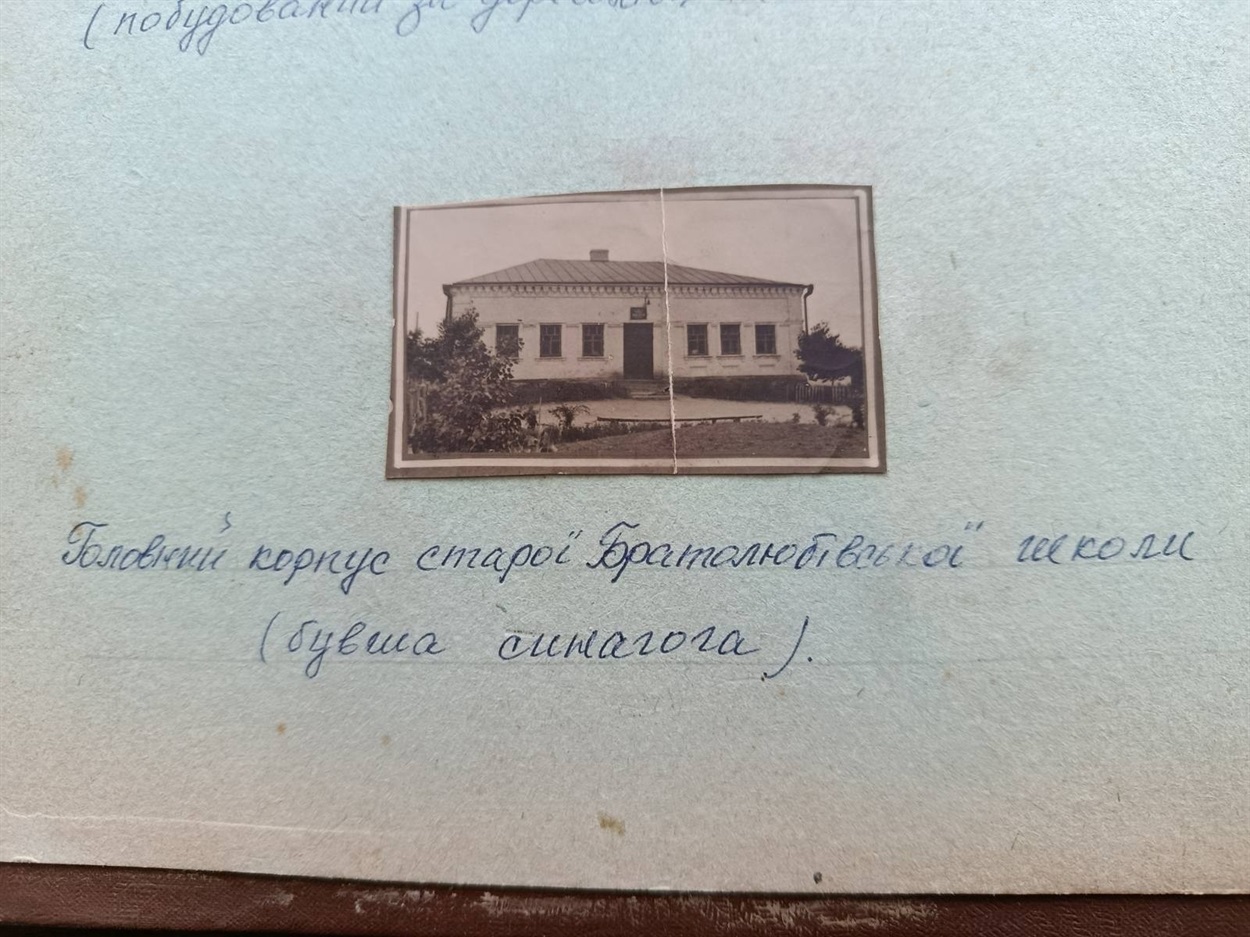 (побудований за
Головний корпус старої Братолюбівської школи
(бувша синагога).